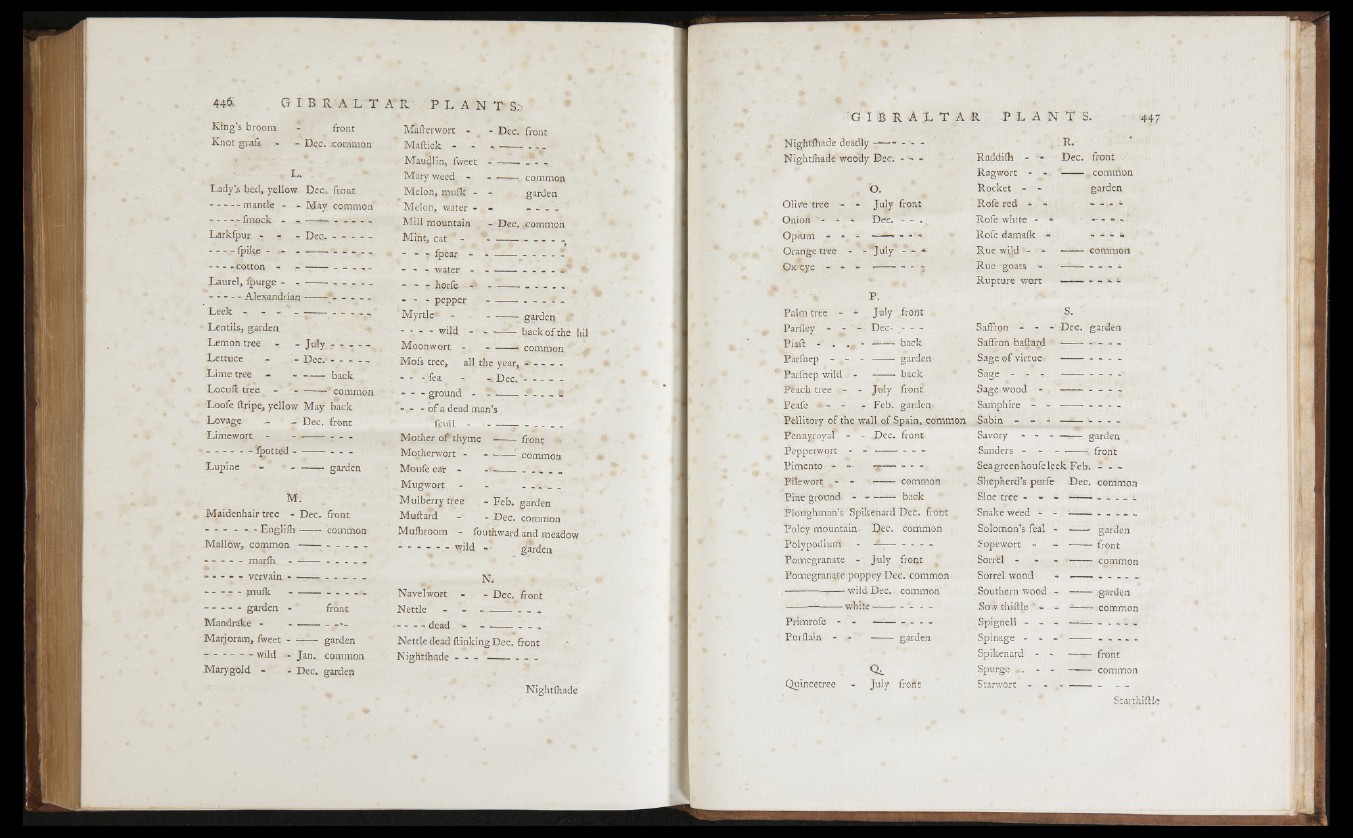 446 GIBRALTAR PLANTS.
King's broom - front
Knot graſs - - Dec. common
L.
Lady's bed, yellow Dec. front
- - - - - mantle - - May common
- - - - - ſmock - - —— - - - - -
Larkſpur - - - Dec. - - - - -
- - - - ſpike - - - —— - - - - -
- - - - cotton - - —— - - - - -
Laurel, ſpurge - - —— - - - - -
- - - - - Alexandrian —— - - - - -
Leek - - - - —— - - - - -
Lentils, garden
Lemon tree - - July - - - - -
Lettuce - - Dec. - - - - -
Lime tree - - —— back
Locuſt tree - - —— common
Looſe ſtripe, yellow May back
Lovage - - Dec. front
Limewort - - —— - - -
- - - - - - ſpotted - —— - - -
Lupine - - —— garden
M.
Maidenhair tree - Dec. front
- - - - - - Engliſh —— common
Mallow, common —— - - - - -
- - - - - marſh - —— - - - - -
- - - - - vervain - —— - - - - -
- - - - - muſk - —— - - - - -
- - - - - garden - front
Mandrake - - —— - - - -
Marjoram, ſweet - —— garden
- - - - - - wild - Jan. common
Marygold - - Dec. garden
Maſterwort - - Dec. front
Maſtick - - - —— - - -
Maudlin, ſweet - —— - - -
Mary weed - - —— common
Melon, muſk - - garden
Melon, water - - - - - -
Mill mountain - Dec. common
Mint, cat - - —— - - - - -
- - - ſpear - - —— - - - - -
- - - water - - —— - - - - -
- - - horſe - - —— - - - - -
- - - pepper - —— - - - - -
Myrtle - - —— garden
- - - - wild - - —— back of the hil
Moonwort - - —— common
Moſs tree, all the year, - - - - -
- - - ſea - - Dec. - - - - -
- - - ground - - —— - - - - -
- - - of a dead man's
ſcull - - —— - - - - -
Mother of thyme —— front
Motherwort - - —— common
Mouſe ear - - —— - - - - -
Mugwort - - - - - - -
Mulberry tree - Feb. garden
Muſtard - - Dec. common
Muſhroom - ſouthward and meadow
- - - - - - wild - garden
N.
Navelwort - - Dec. front
Nettle - - - —— - - -
- - - - dead - - —— - - -
Nettle dead ſtinking Dec. front
Nightſhade - - - —— - - -
Nightſhade
GIBRALTAR PLANTS. 447
Nightſhade deadly —— - - -
Nightſhade woody Dec. - - -
O.
Olive tree - - July front
Onion - - - Dec. - - -
Opium - - - —— - - -
Orange tree - - July - - -
Ox-eye - - - —— - - -
P.
Palm tree - - July front
Parſley - - - Dec. - - -
Piaſt - - - - —— back
Parſnep - - - —— garden
Parſnep wild - —— back
Peach tree - - July front
Peaſe - - - Feb. garden
Pellitory of the wall of Spain, common
Pennyroyal - - Dec. front
Pepperwort - - —— - - -
Pimento - - —— - - -
Pilewort - - —— common
Pine ground - - —— back
Ploughman's Spikenard Dec. front
Poley mountain Dec. common
Polypodium - —— - - - -
Pomegranate - July front
Pomegranate poppey Dec. common
———— wild Dec. common
———— white —— - - - -
Primroſe - - —— - - - -
Purſlain - - —— garden
Q.
Quincetree - July front
R.
Raddiſh - - Dec. front
Ragwort - - —— common
Rocket - - garden
Roſe red - - - - - -
Roſe white - - - - - -
Roſe damaſk - - - - -
Rue wild - - —— common
Rue goats - —— - - - -
Rupture wort —— - - - -
S.
Saffron - - - Dec. garden
Saffron baſtard —— - - - -
Sage of virtue —— - - - -
Sage - - - —— - - - -
Sage-wood - —— - - - -
Samphire - - —— - - - -
Sabin - - - —— - - - -
Savory - - - —— garden
Sanders - - - —— front
Sea green houſeleek Feb. - - -
Shepherd's purſe Dec. common
Sloe tree - - - —— - - - - -
Snake weed - - —— - - - - -
Solomon's ſeal - —— garden
Sopewort - - —— front
Sorrel - - - —— common
Sorrel wood - —— - - - - -
Southern wood - —— garden
Sow thiſtle - - —— common
Spignell - - - —— - - - - -
Spinage - - - —— - - - - -
Spikenard - - —— front
Spurge - - - —— common
Starwort - - - —— - - -
Starthiſtle